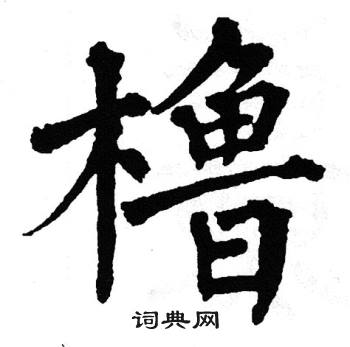 橹
词典网